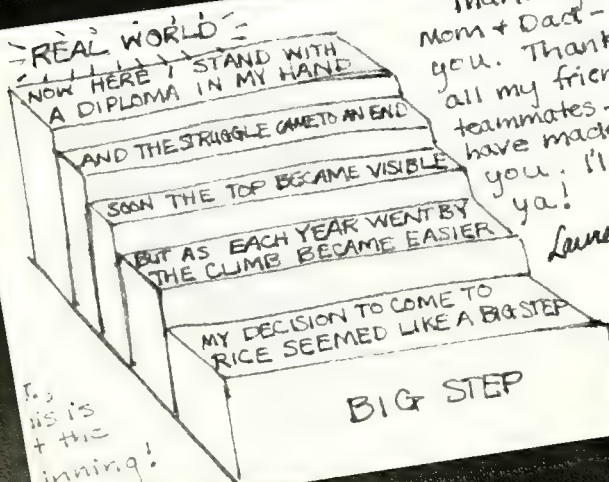 REAL WORLD
NOW HERE I STAND WITH
A DIPLOMA IN MY HAND
AND THE STRUGGLE CAME TO AN END
SOON THE TOP BECAME VISIBLE
BUT AS EACH YEAR WENT BY
THE CLIMB BECAME EASIER
MY DECISION TO COME TO
RICE SEEMED LIKE A BIG STEP
BIG STEP
Mom + Dad-
you. Thank
all my
teammates.
have made
you. I'll
ya!
is
the